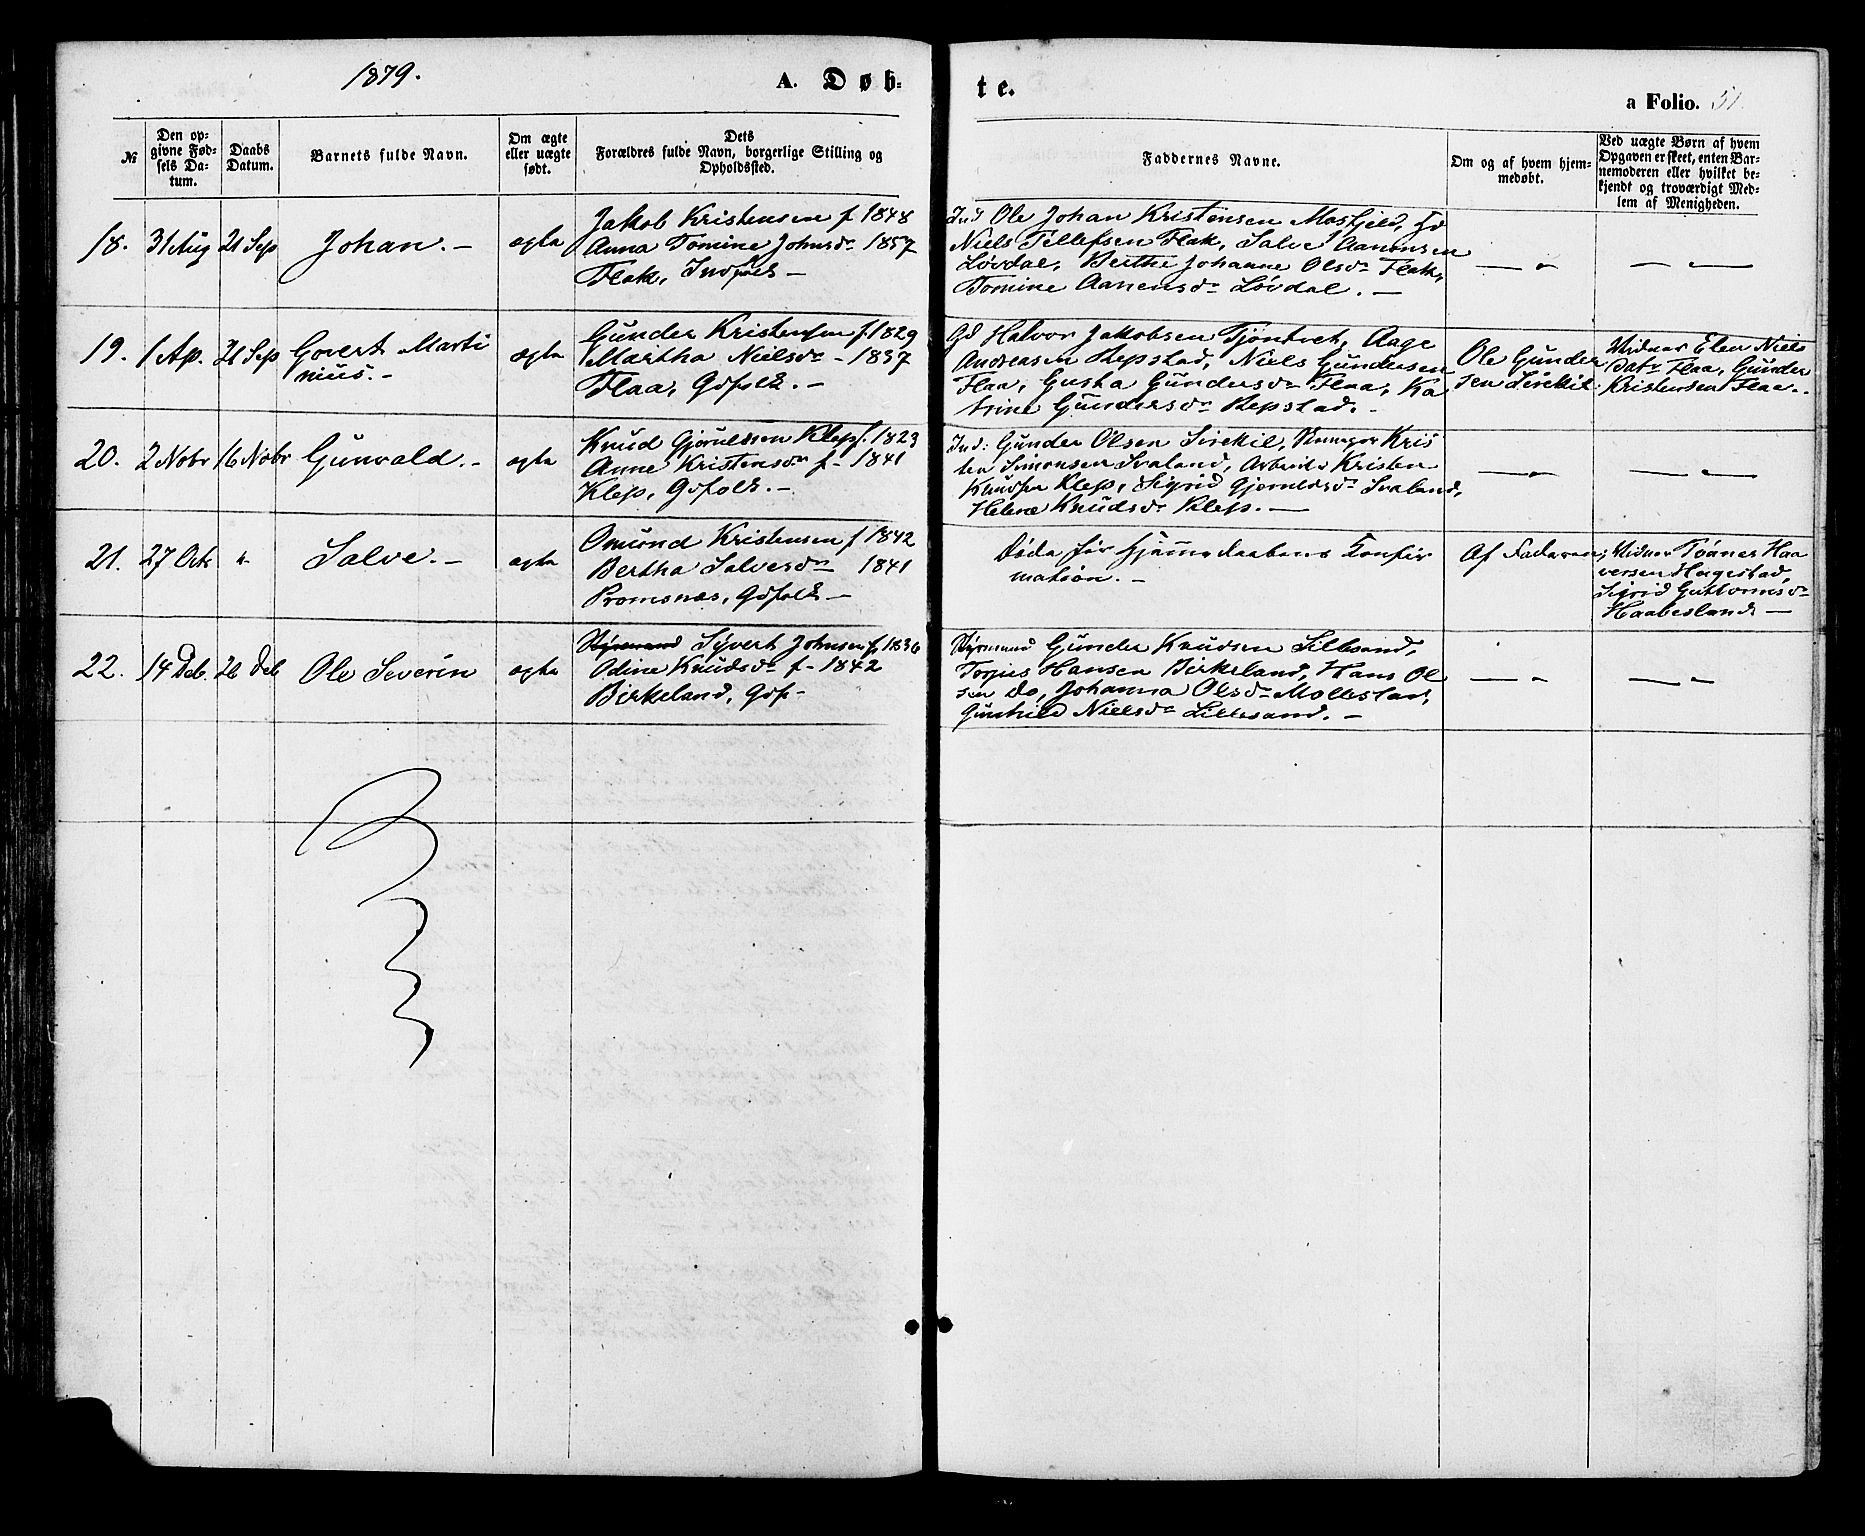 1879.
A. Døb-
te.
a Folio. 51.
№
Den op-
givne Fød-
sels Da-
tum.
Daabs
Datum.
Barnets fulde Navn.
Om ægte
eller uægte
født.
Dets
Forældres fulde Navn, borgerlige Stilling og
Opholdssted.
Faddernes Navne.
Om og af hvem hjem-
medøbt.
Ved uægte Børn af hvem
Opgaven er skeet, enten Bar-
nemoderen eller hvilket be-
kjendt og troværdigt Med-
lem af Menigheden.
18. 31 Aug 21 Sep Johan. - ægte
Jakob Kristensen f 1848
Anna Tomine Johnsdr 1857
Flak, Indf -
Ind Ole Johan Kristensen Mosfjeld, Gd
Niels Tellefsen Flak, Salve Aanensen
Løvdal, Berthe Johanne Olsdr Flak,
Tomine Aanensdr Løvdal. -
— " — "
19. 1 Ap. 21 Sep Govert Marti
nius. - ægte
Gunder Kristensen f. 1829
Martha Nielsdr - 1837
Flaa, Gdfolk. -
Gd Halvor Jakobsen Tjøntvet, Aage
Andreasen Repstad, Niels Gundersen
Flaa, Gusta Gundersdr Flaa, Ka
trine Gundersdr Repstad. -
Ole Gunder
sen Sirekil.
Vidner Elen Niels
Datr Flaa, Gunder
Kristensen Flaa. -
20. 2 Nobr 16 Nobr Gunvald. - ægte
Knud Gjeruldsen Klep f. 1823
Anne Kristensdr f - 1841
Klep, Gdfolk. -
Ind: Gunder Olsen Sirekil, Kris
ten Simonsen Svaland, Arbeids Kristen
Knudsen Klep, Sigrid Gjeruldsdr Svaland,
Helene Knudsdr Klep. —
— " — "
21. 27 Octr " Salve. - ægte
Omund Kristensen f 1842
Bertha Salvesdr 1841
Promsnes, Gdfolk -
Døde før Hjemmedaabens Konfir
mation. -
Af Faderen;
Vidner Tønnes Haa
versen Hagestad,
Sigrid Guttormsdr
Haabesland -
22. 14 Deb. 26 Deb Ole Severin ægte
Styrmand Syvert Johnsen f. 1836
Odine Knudsdr f - 1842
Birkeland, Gdf -
Styrmand Gunder Knudsen Lillesand,
Torjus Hansen Birkeland, Hans Ol
sen do, Johanna Olsdr Mollestad,
Gunhild Nielsdr Lillesand. -
— " — "